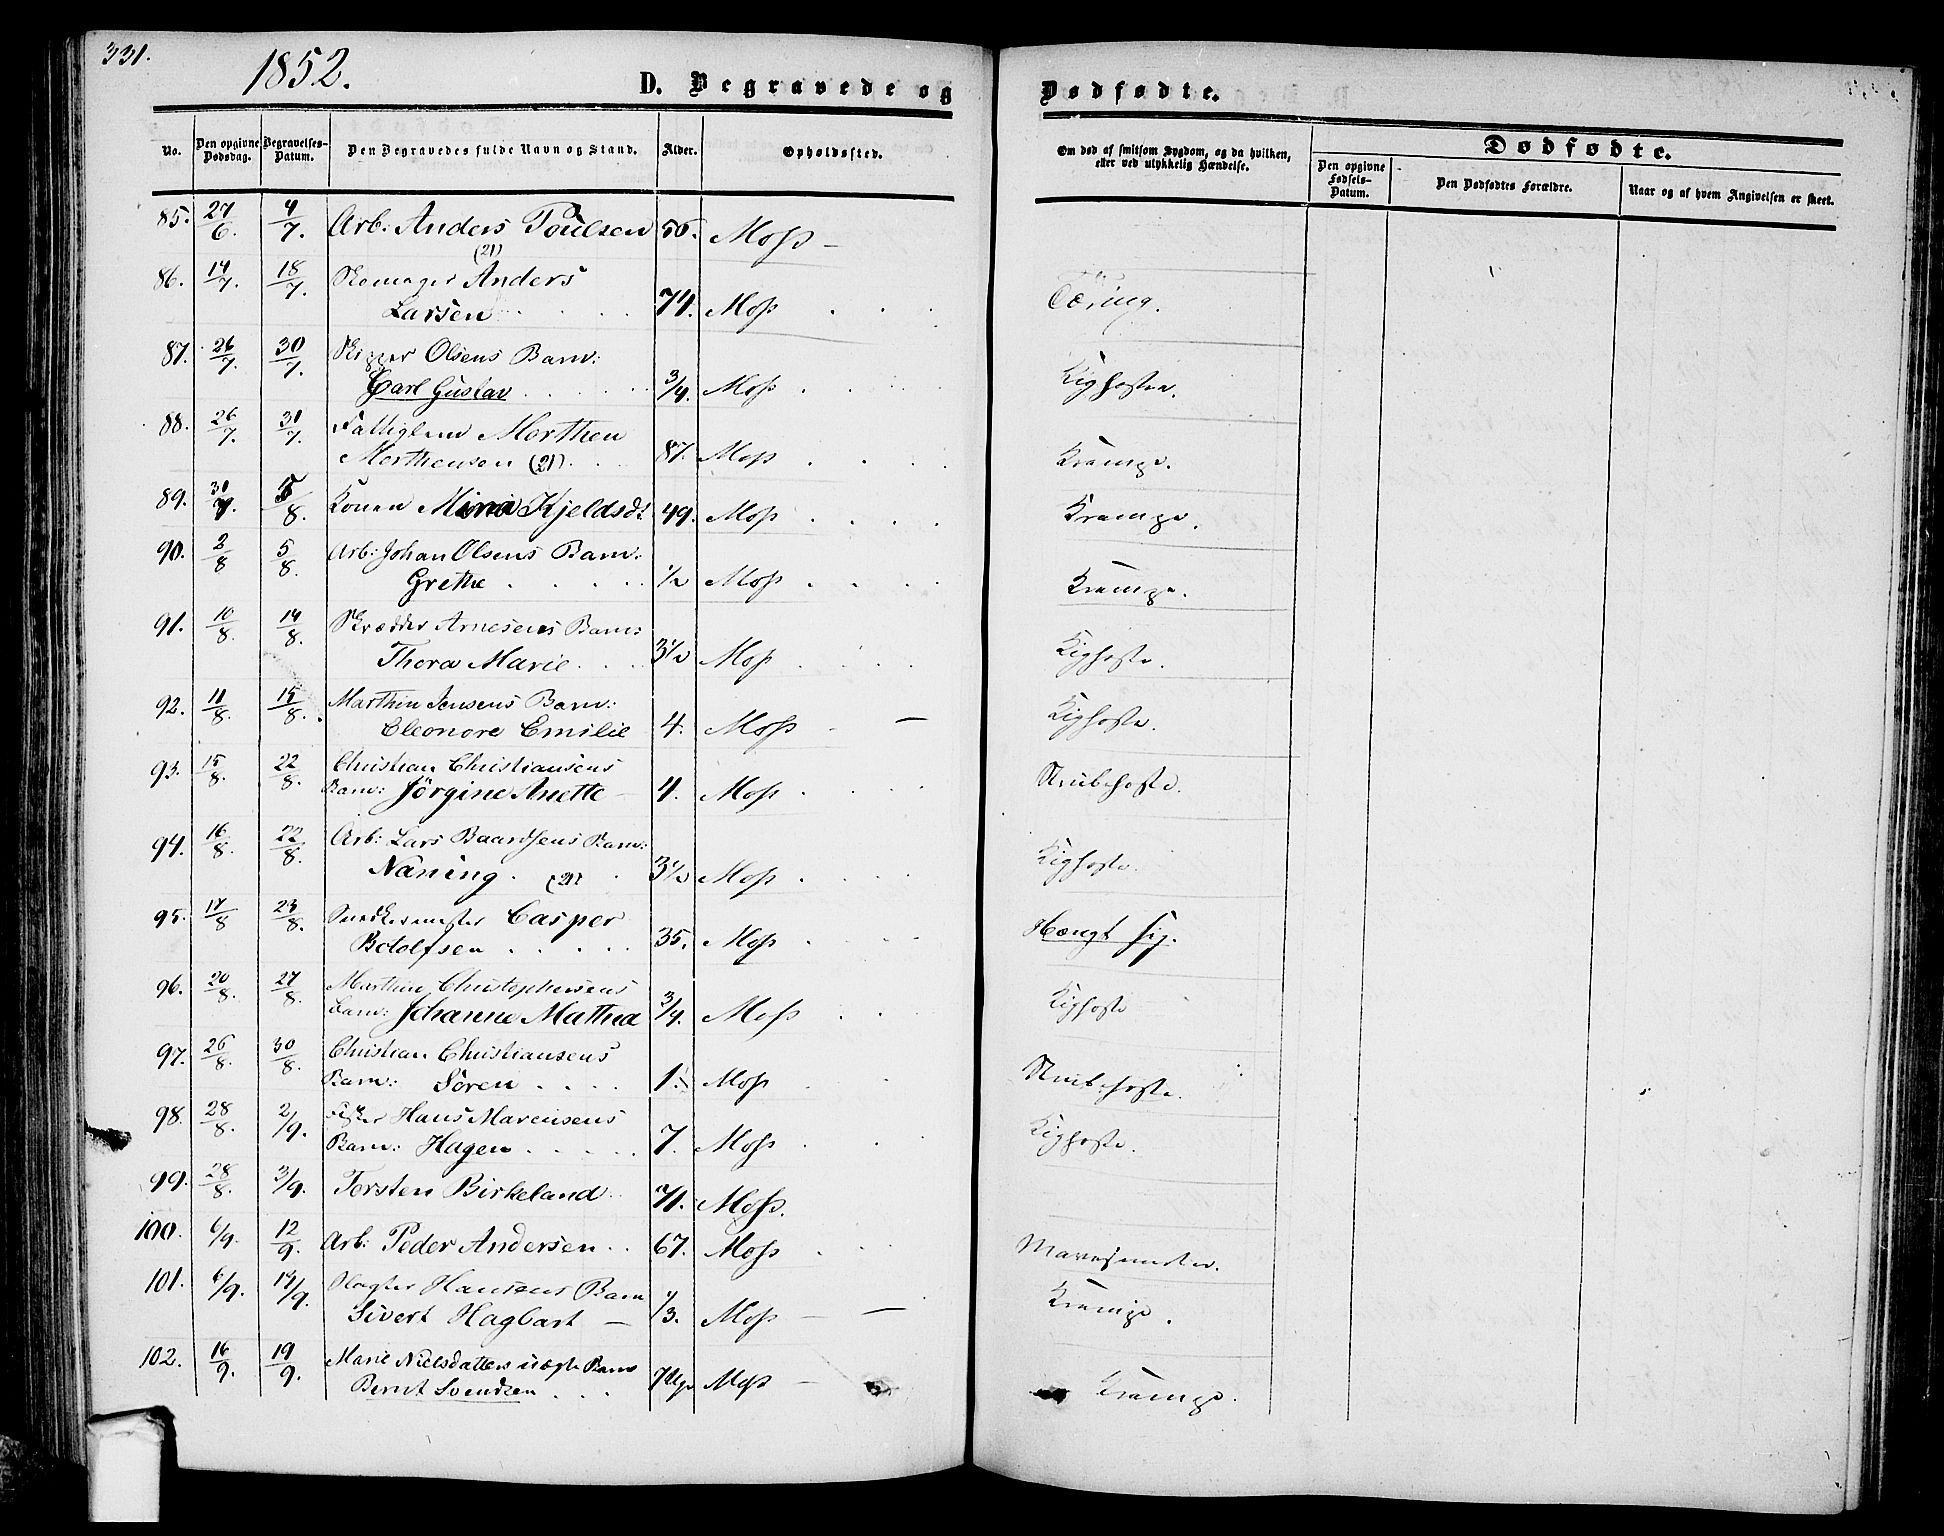 331.
1852.
D. Begravede og Dødfødte.
No. Den opgivne Dødsdag. Begravelses-Datum. Den Begravedes fulde Navn og Stand. Alder. Opholdssted. Om død af smitsom Sygdom, og da hvilken, eller ved ulykkelig Hændelse. Dødfødte.
Den opgivne Fødsels-Datum. Den Dødfødtes Forældre. Naar og af hvem Angivelsen er skeet.
85. 27/6. 4/7. Arb: Anders Poulsen 56. Moss –
(21)
86. 14/7. 18/7. Skomager Anders
Larsen 74. Moss Tæring.
87. 26/7. 30/7. Skipper Olsens Barn:
Carl Gustav 3/4 Moss Kighosten.
88. 26/7. 31/7. Fattiglem Morthen
Morthensen (21) 87. Moss Krampe.
89. 30/7. 5/8. Konen Kjeldsd: 49. Moss Krampe.
90. 2/8 5/8. Arb: Johan Olsens Barn:
Grethe 1/2 Moss Krampe.
91. 10/8. 14/8. Skrædder Arnesens Barn:
Thora Marie 3 1/2 Moss Kighoste.
92. 11/8. 15/8. Marthin Jensens Barn:
Eleonore Emilie 4. Moss – Kighoste.
93. 15/8. 22/8. Christian Christiansens
Barn: Jörgine Anette – 4. Moss Strubehoste.
94. 16/8. 22/8. Arb: Lars Baardsens Barn:
Naning. (21) 3 1/2 Moss Kighoste.
95. 17/8 23/8. Snedkermester Casper
Botolfsen 35. Moss Hængt sig.
96. 20/8. 27/8. Marthin Christophersens
Barn: Johanne Mathea 3/4. Moss Kighoste
97. 26/8. 30/8. Christian Christiansens
Barn: Sören 1. Moss Strubehoste.
98. 28/8. 2/9. Fisker Hans Marensens
Barn: Hagen 7. Moss Kighoste.
99. 28/8. 3/9. Torsten Birkeland 71. Moss.
100. 6/9. 12/9. Arb: Peder Andersen 67. Moss
101. 6/9. 14/9. Slagter Hansens Barn
Sivert Hagbart – 1/3. Moss – Krampe.
102. 16/9. 19/9. Marie Nielsdatters uægte Barn
Bernt Svendsen 7 Uge Moss – Krampe.